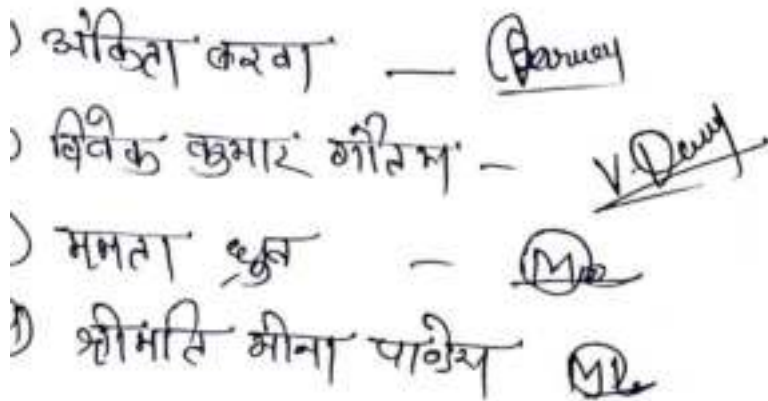 ) अंकिता करवा —
) विवेक कुमार गौतम - V.
) ममता ध्रुव -
) श्रीमति मीना पाण्डेय